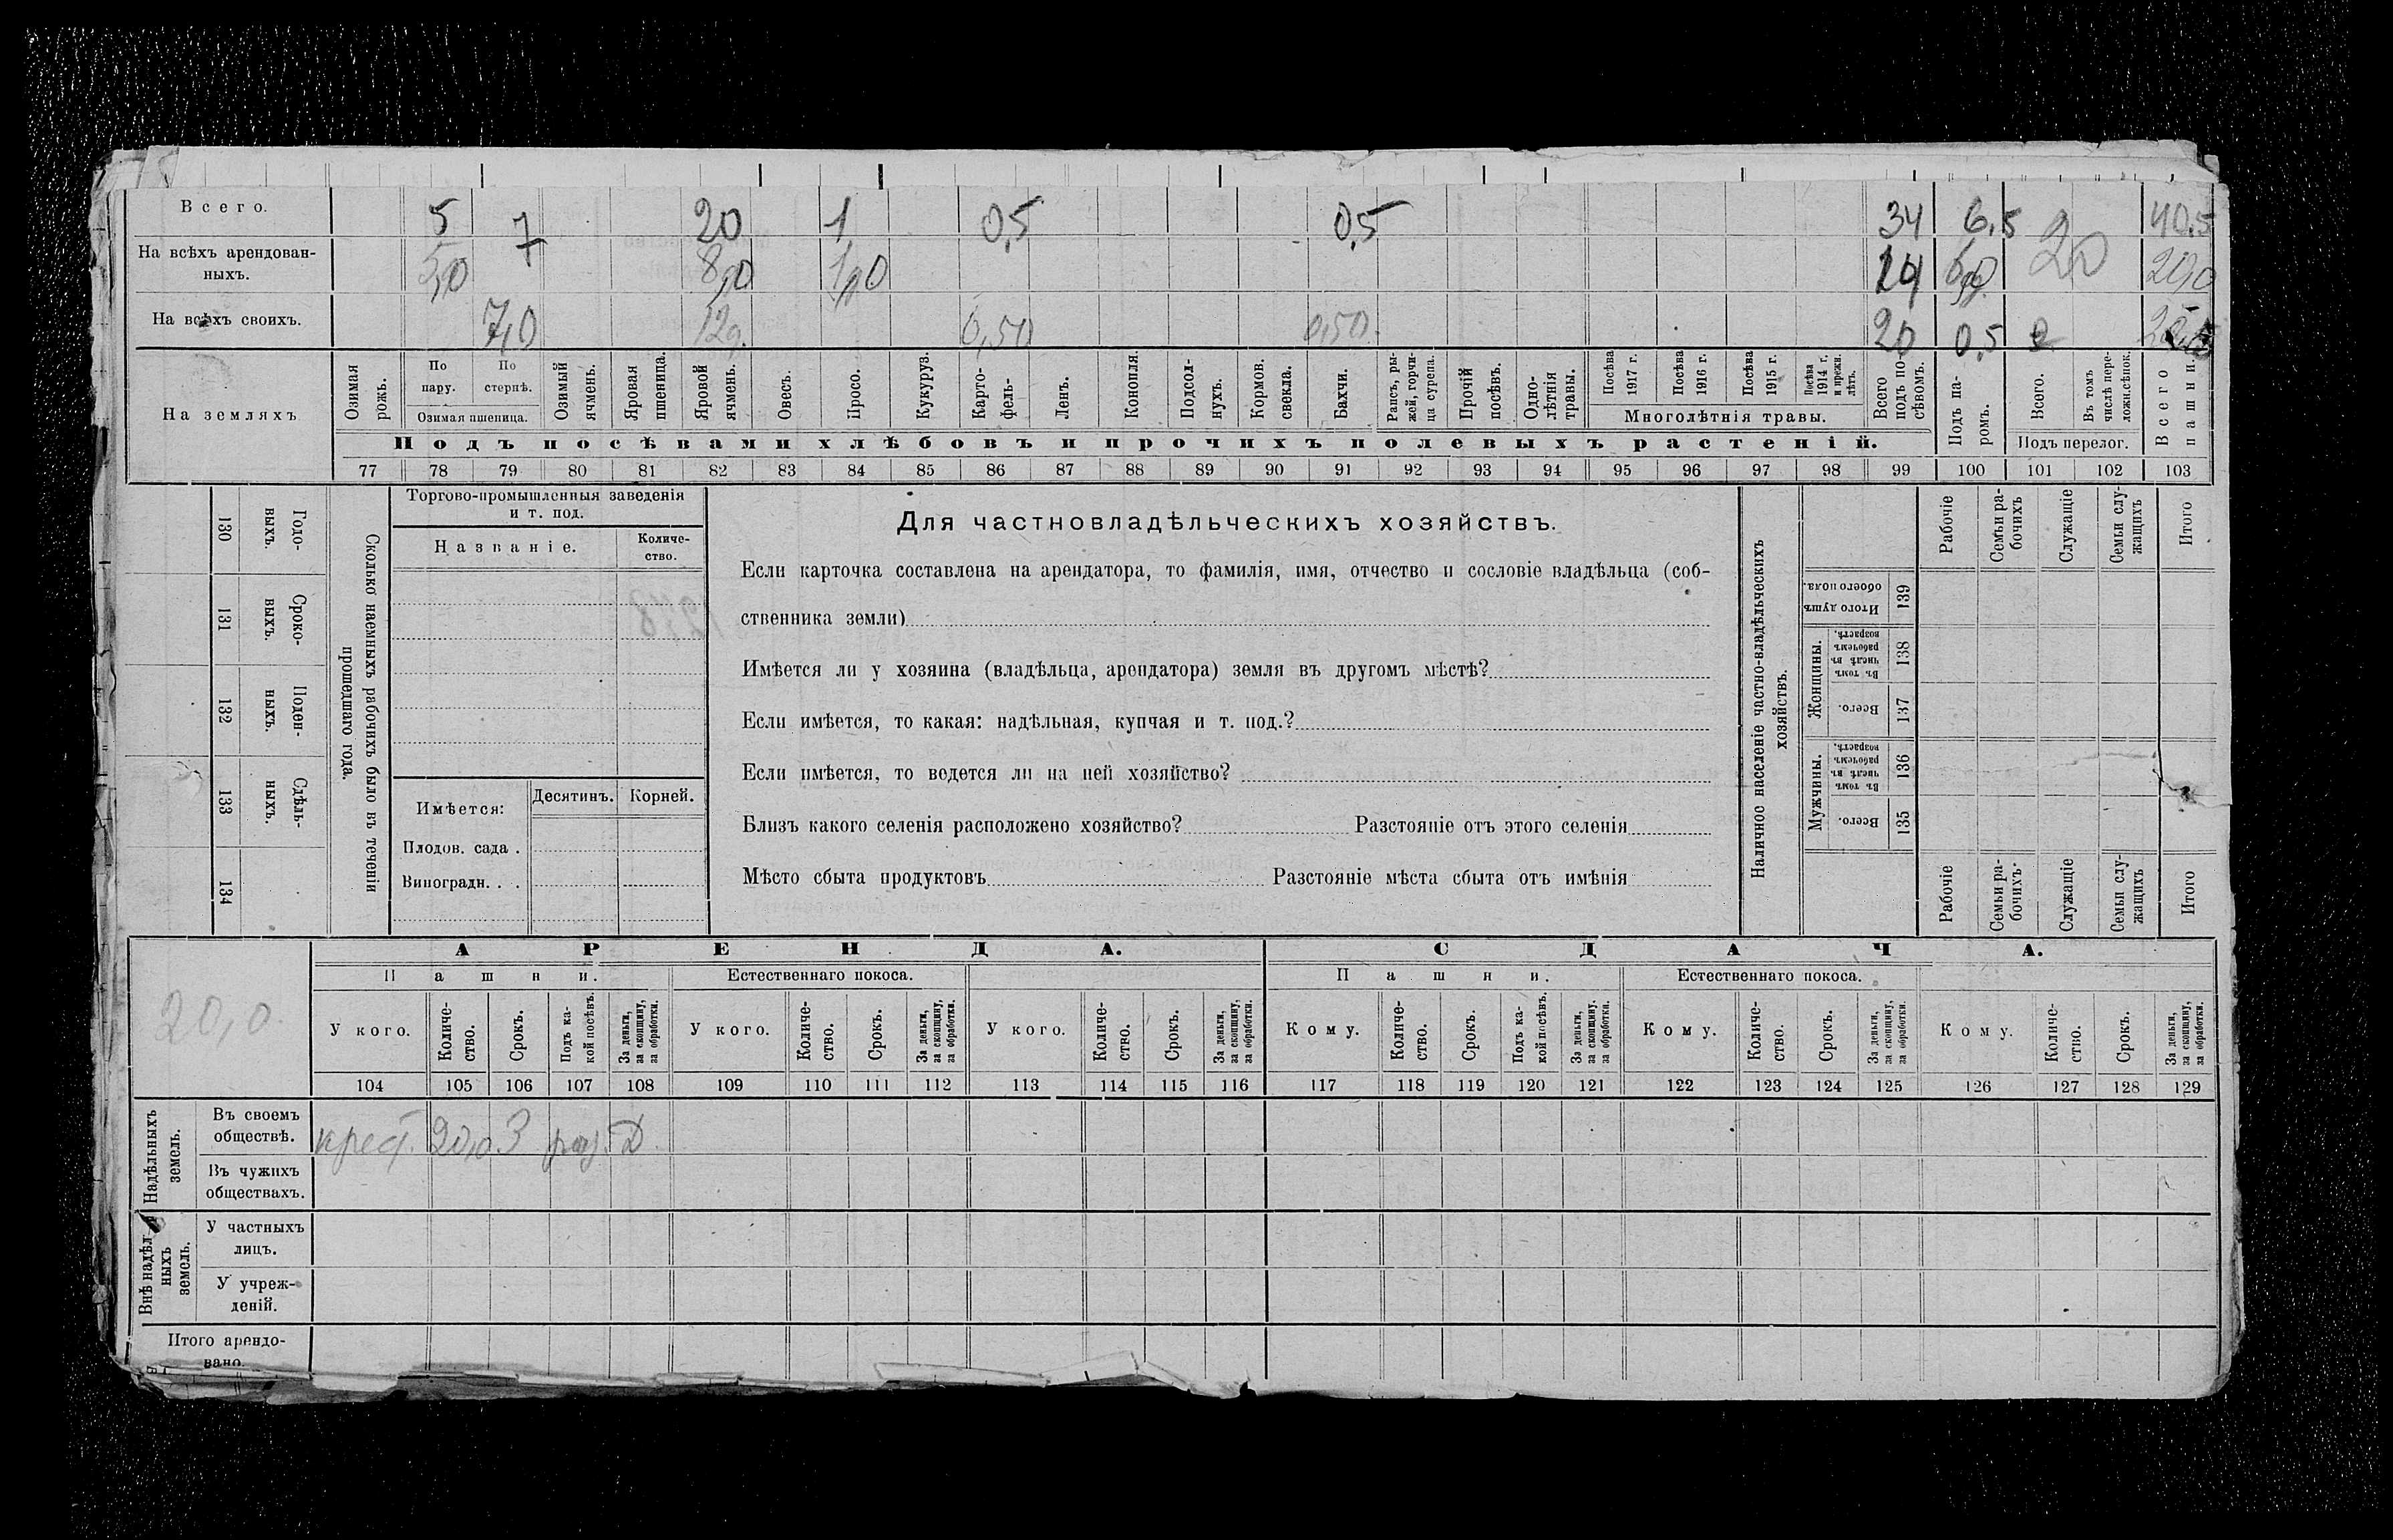 Всего. 5 7 20 1 0,5 0,5 34 6,5 20 40,5
На всѣхъ арендован-
ныхъ. 5,0 8,0 1,0 14 20,0
На всѣхъ своихъ. 7,0 12,0 0,50 0,50 20 0,5
На земляхъ
Озимая рожь.
По пару.
По стернѣ.
Озимая пшеница.
Озимый ячмень.
Яровая пшеница.
Яровой ячмень.
Овесъ.
Просо.
Кукуруз.
Карто-
фель-
Ленъ.
Конопля.
Подсол-
нухъ.
Кормов. свекла.
Бахчи.
Рапсъ, ры-
жей, горчи-
ца сурепа.
Прочій посѣвъ.
Одно-
лѣтнія травы.
Посѣва 1917 г.
Посѣва 1916 г.
Посѣва 1915 г.
Посѣва 1914 г. и прежн. лѣтъ.
Многолѣтнія травы.
Всего подъ по-
сѣвомъ.
Подъ па-
ромъ.
Всего.
Въ томъ числѣ пере-
ложн.сѣнок.
Подъ перелог.
Всего пашни.
Подъ посѣвами хлѣбовъ и прочихъ полевыхъ растеній.
77 78 79 80 81 82 83 84 85 86 87 88 89 90 91 92 93 94 95 96 97 98 99 100 101 102 103
Сколько наемныхъ рабочихъ было въ теченіи
прошедшаго года.
Годо-
выхъ.
130
Сроко-
выхъ.
131
Поден-
ныхъ.
132
Сдѣль-
ныхъ.
133
134
Торгово-промышленныя заведенія
и т. под.
Названіе.
Количе-
ство.
Имѣется:
Десятинъ. Корней.
Плодов. сада .
Виноградн. . .
Для частновладѣльческихъ хозяйствъ.
Если карточка составлена на арендатора, то фамилія, имя, отчество и сословіе владѣльца (соб-
ственника земли)
Имѣется ли у хозяина (владѣльца, арендатора) земля въ другомъ мѣстѣ?
Если имѣется, то какая: надѣльная, купчая и т. под.?
Если имѣется, то ведется ли на ней хозяйство?
Близъ какого селенія расположено хозяйство? Разстояніе отъ этого селенія
Мѣсто сбыта продуктовъ Разстояніе мѣста сбыта отъ имѣнія
Наличное населеніе частно-владѣльческихъ
хозяйствъ.
Рабочіе
Семьи ра-
бочихъ
Служащіе
Семьи слу-
жащихъ
Итого
Итого душъ обоего пола.
139
Женщины.
Въ томъ числѣ въ рабочемъ возрастѣ.
138
Всего.
137
Мужчины.
Въ томъ числѣ въ рабочемъ возрастѣ.
136
Всего.
135
Рабочіе
Семьи ра-
бочихъ.
Служащіе
Семьи слу-
жащихъ
Итого
20,0.
АРЕНДА.
СДАЧА.
Пашни. Естественнаго покоса. Пашни. Естественнаго покоса.
У кого.
Количе-
ство.
Срокъ.
Подъ ка-
кой посѣвъ.
За деньги,
за скопщину,
за обработки.
У кого.
Количе-
ство.
Срокъ.
За деньги,
за скопщину,
за обработки.
У кого.
Количе-
ство.
Срокъ.
За деньги,
за скопщину,
за обработки.
Кому.
Количе-
ство.
Срокъ.
Подъ ка-
кой посѣвъ.
За деньги,
за скопщину,
за обработки.
Кому.
Количе-
ство.
Срокъ.
За деньги,
за скопщину,
за обработки.
Кому.
Количе-
ство.
Срокъ.
За деньги,
за скопщину,
за обработки.
104 105 106 107 108 109 110 111 112 113 114 115 116 117 118 119 120 121 122 123 124 125 126 127 128 129
Надѣльныхъ
земель.
Въ своемъ
обществѣ. крест. 20,0 3 раз. Д.
Въ чужихъ
обществахъ.
Внѣ надѣл
ныхъ
земель.
У частныхъ
лицъ.
У учреж-
деній.
Итого арендо-
вано.